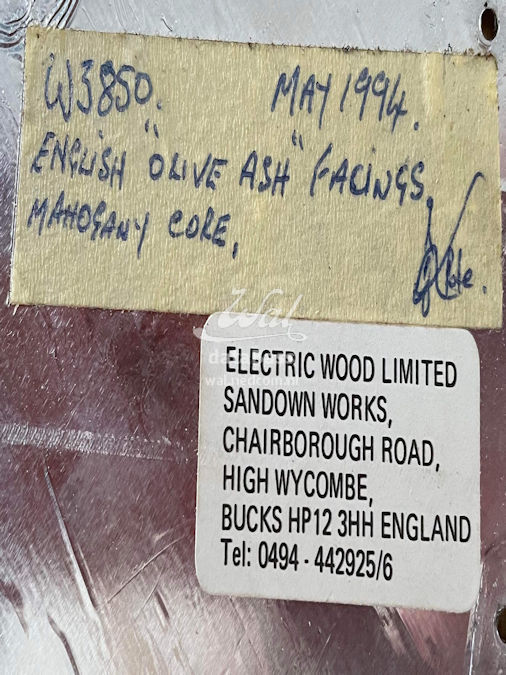 W3850. MAY 1994.
ENGLISH "OLIVE ASH" FACINGS,
MAHOGANY CORE,
ELECTRIC WOOD LIMITED
SANDOWN WORKS,
CHAIRBOROUGH ROAD,
HIGH WYCOMBE,
BUCKS HP12 3HH ENGLAND
Tel: 0494 - 442925/6
Wal